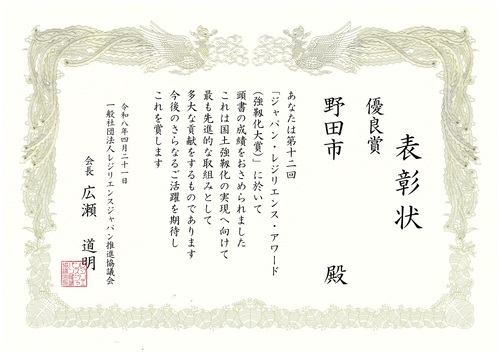 表彰状
優良賞
野田市 殿
あなたは第十二回
「ジャパン・レジリエンス・アワード
(強靱化大賞)」に於いて
頭書の成績をおさめられました
これは国土強靱化の実現へ向けて
最も先進的な取組みとして
多大な貢献をするものであります
今後のさらなるご活躍を期待し
これを賞します
令和八年四月二十一日
一般社団法人レジリエンスジャパン推進協議会
会長 広瀬 道明